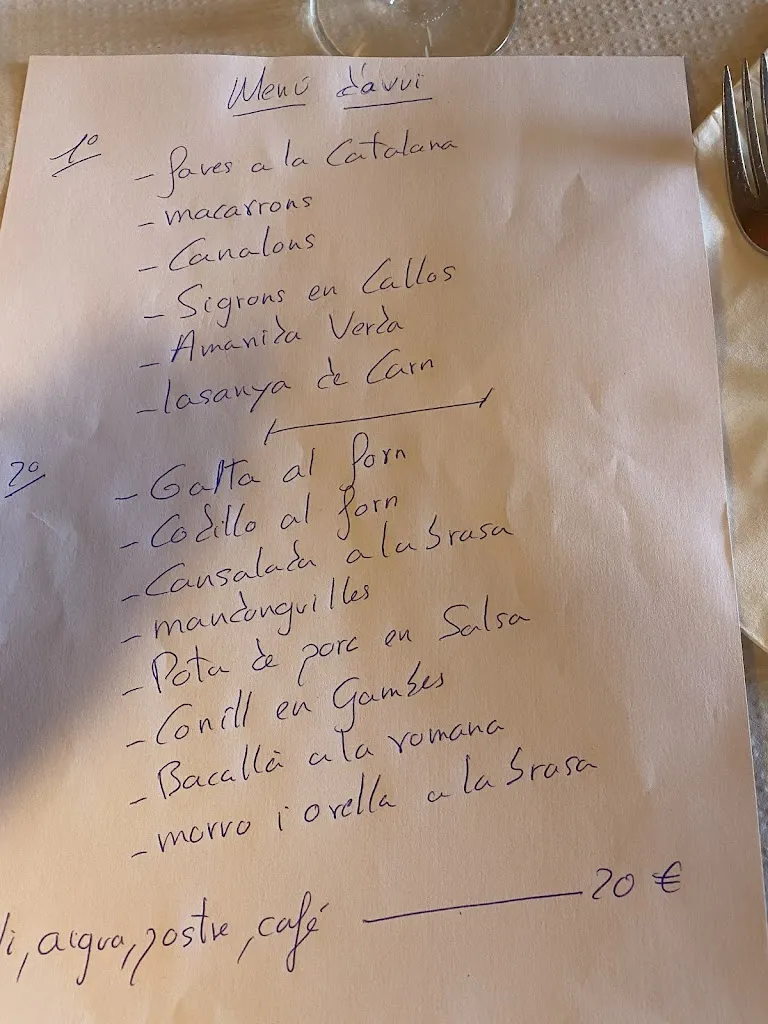 Menú d'avui
1º
- faves a la Catalana
- macarrons
- Canalons
- Sigrons en Callos
- Amanida Verda
- lasanya de Carn
2º
- Galta al forn
- Codillo al forn
- Cansalada a la brasa
- mandonguilles
- Pota de porc en Salsa
- Conill en Gambes
- Bacallà a la romana
- morro i orella a la brasa
Vi, aigua, postre, café 20 €